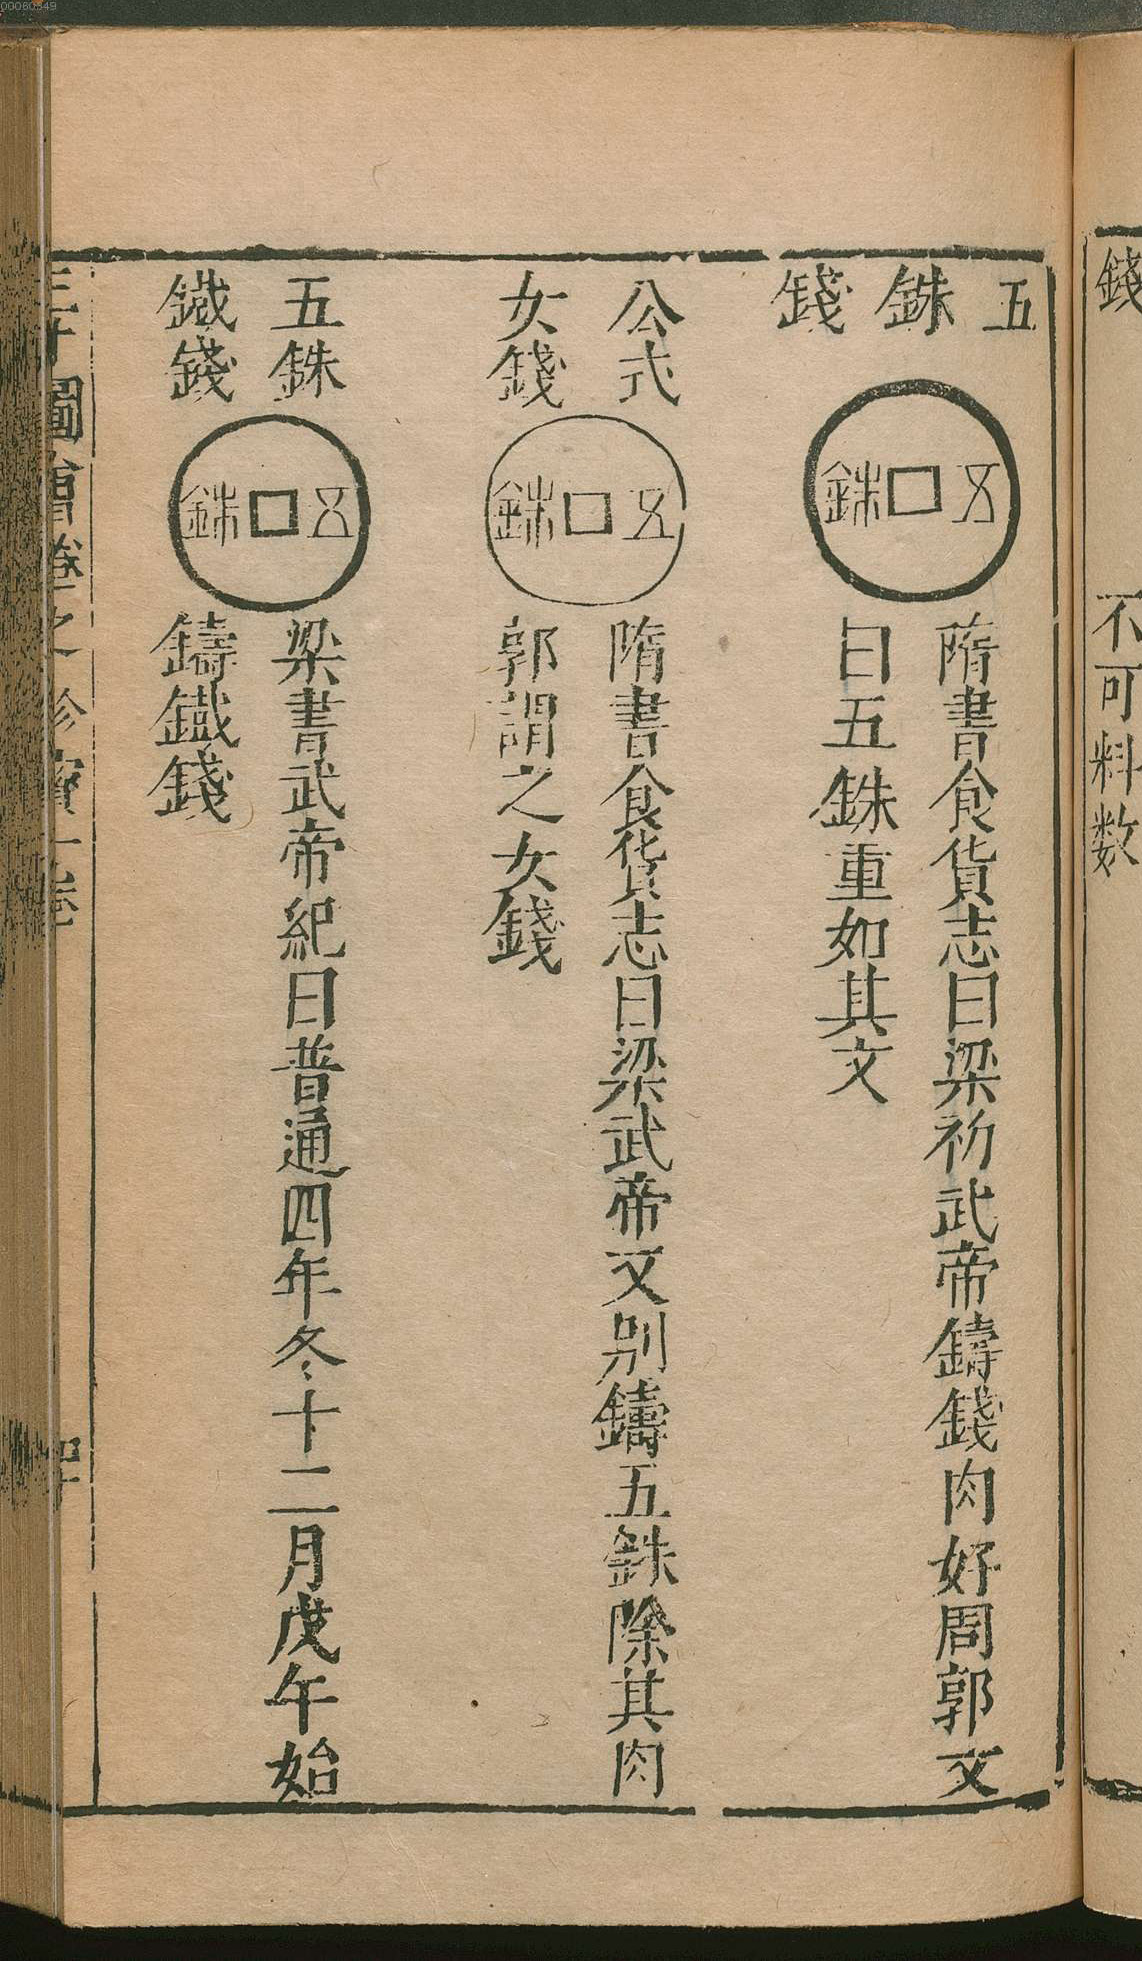 00060549
錢
不可料数
五銖錢
五銖
隋書食貨志曰梁初武帝鑄錢肉好周郭文
曰五銖重如其文
公式
女錢
五銖
隋書食貨志曰梁武帝又別鑄五銖除其肉
郭謂之女錢
五銖
鐵錢
五銖
梁書武帝紀曰普通四年冬十二月戊午始
鑄鐵錢
圖會卷之珍寳一卷